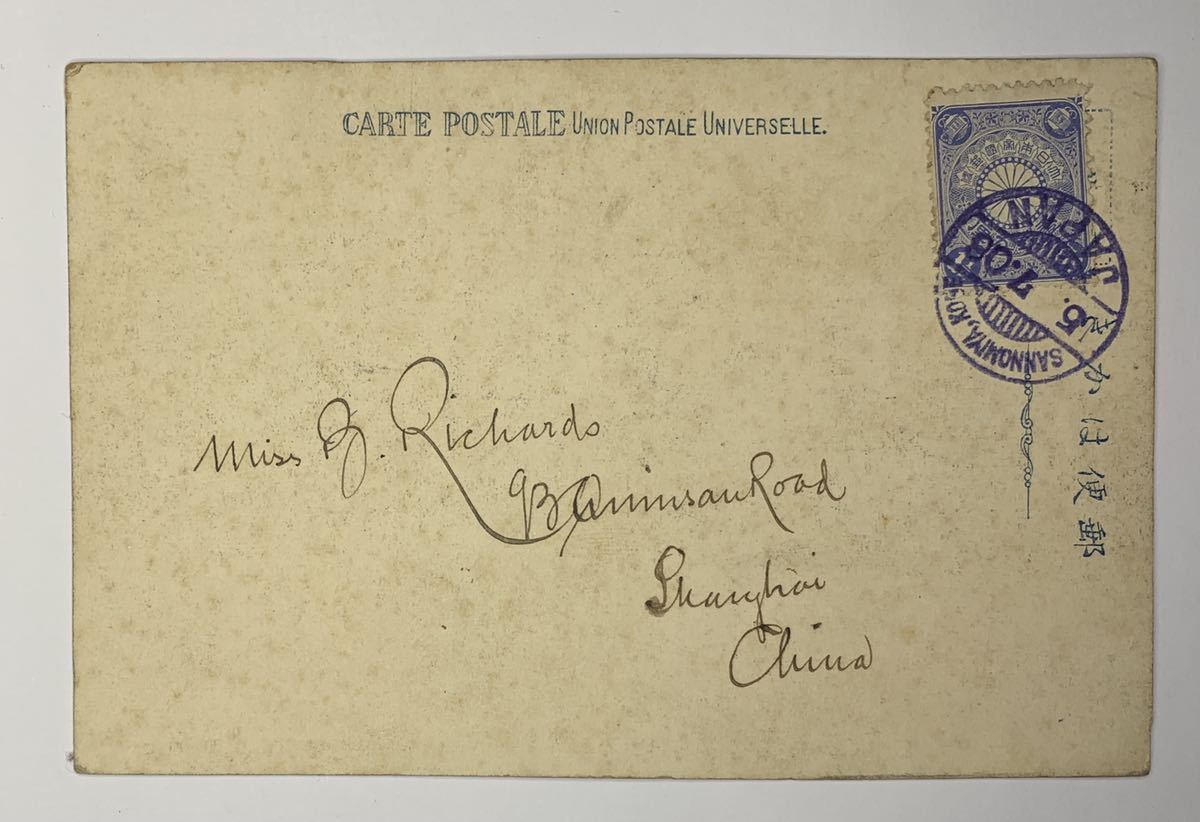 CARTE POSTALE UNION POSTALE UNIVERSELLE.
JAPAN
5.7.08
SANNOMIYA, KOBE
郵便はかき
Miss B. Richards
9B Quinsan Road
Shanghai
China